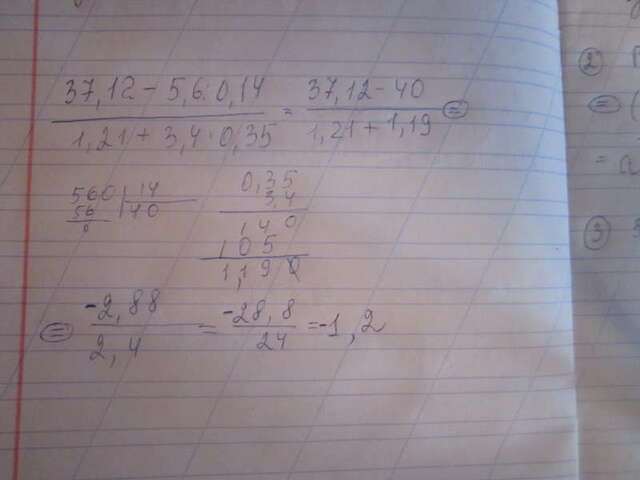 37,12 - 5,6:0,14 = 37,12 - 40 =
1,21 + 3,4·0,35 1,21 + 1,19
560 14
56 40
0
0,35
3,4
140
105
1,190
= -2,88 = -28,8 = -1,2
2,4 24
2
= (
=
3